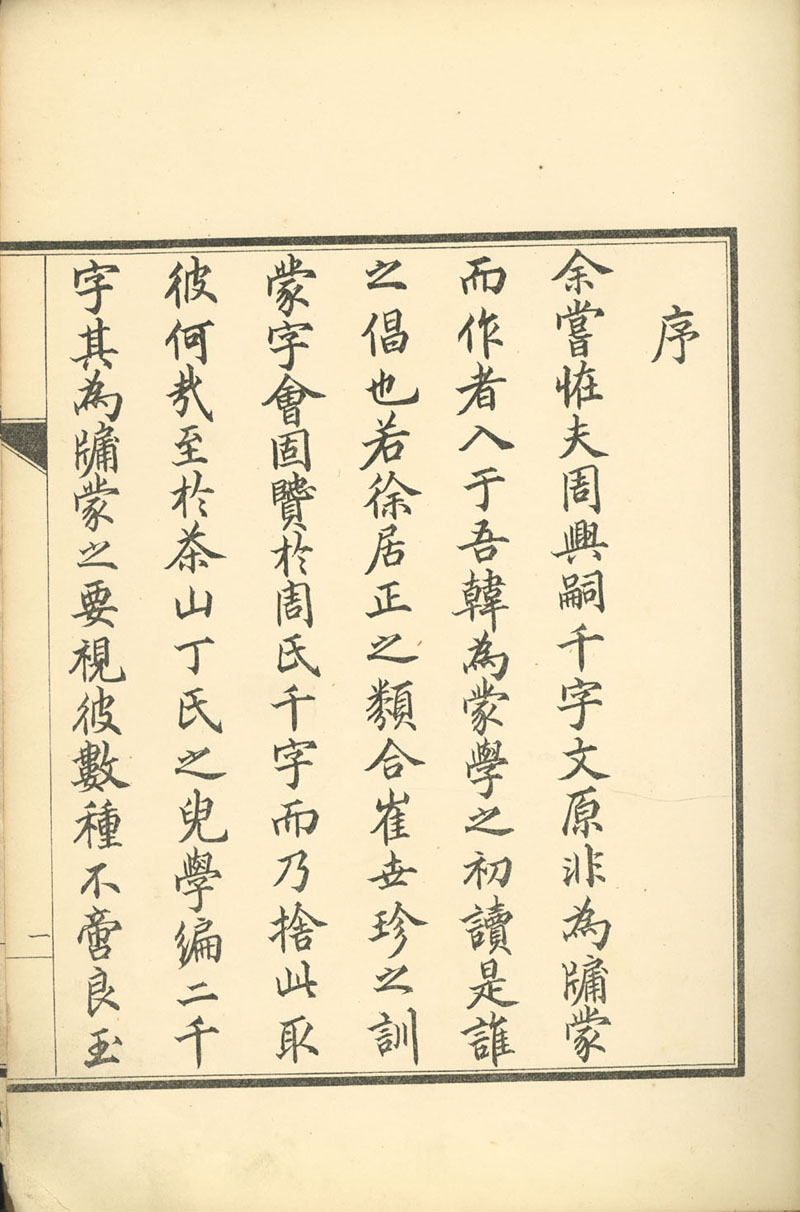 序
余嘗恠夫周興嗣千字文原非為牖蒙
而作者入于吾韓為蒙學之初讀是誰
之倡也若徐居正之類合崔世珍之訓
蒙字會固贒於周氏千字而乃捨此取
彼何㢤至於茶山丁氏之兒學編二千
字其為牖蒙之要視彼數種不啻良玉
一